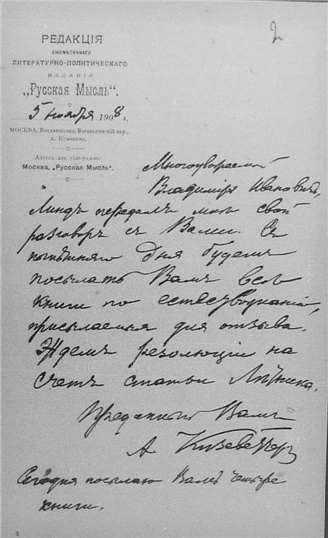 2
РЕДАКЦІЯ
ЕЖЕМѢСЯЧНАГО
ЛИТЕРАТУРНО-ПОЛИТИЧЕСКАГО
ИЗДАНІЯ
„Русская Мысль“.
5 ноября 1908 г.
МОСКВА, Воздвиженка, Ваганьковскій пер.,
д. Куманина.
Адресъ для телеграммъ:
Москва, „Русская Мысль“.
Многоуважаемый
Владиміръ Ивановичъ,
Линдъ передалъ мнѣ свой
разговоръ съ Вами. Съ
дня будемъ
посылать Вамъ всѣ
книги по естествознанію,
присылаемыя для отзыва.
Ждемъ резолюціи на
счетъ статьи
Преданный Вамъ
А Кизеветтеръ
Сегодня посылаю Вамъ четыре
книги.